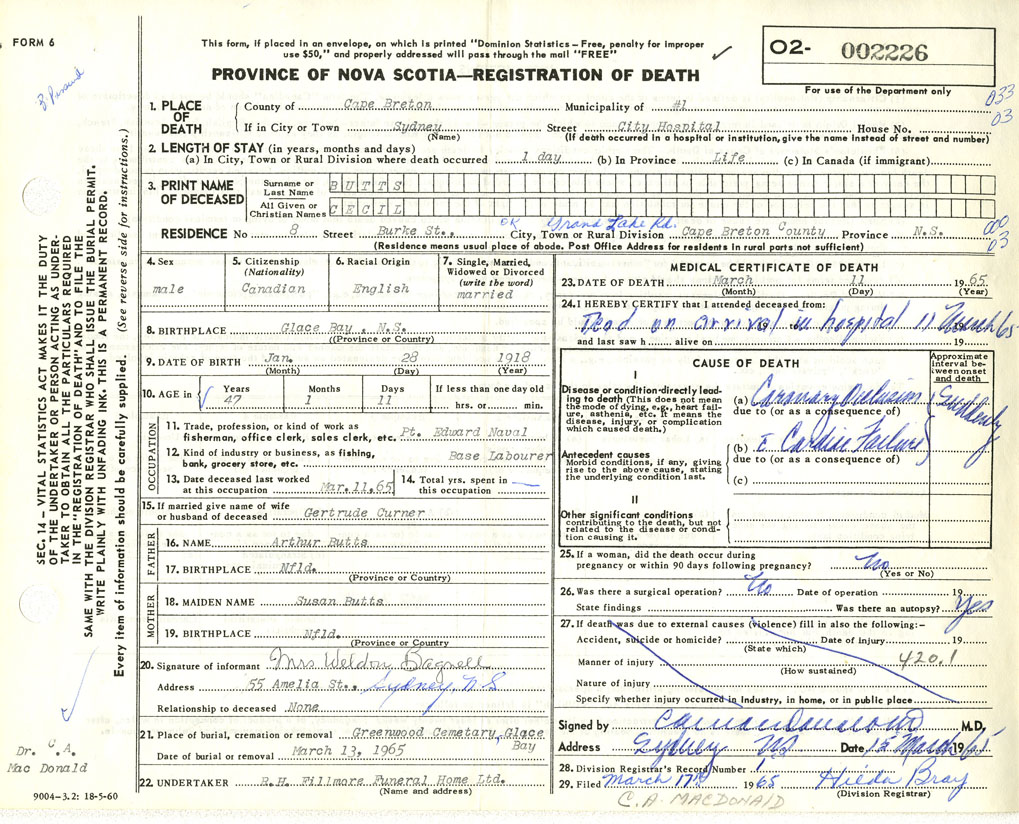 FORM 6
This form, if placed in an envelope, on which is printed "Dominion Statistics – Free, penalty for improper
use $50," and properly addressed will pass through the mail "FREE"
PROVINCE OF NOVA SCOTIA—REGISTRATION OF DEATH
O2- 002226
For use of the Department only
033
03
1. PLACE OF DEATH
County of Cape Breton Municipality of #1
If in City or Town Sydney Street City Hospital House No.
(Name) (If death occurred in a hospital or institution, give the name instead of street and number)
2. LENGTH OF STAY (in years, months and days)
(a) In City, Town or Rural Division where death occurred 1 day (b) In Province Life (c) In Canada (if immigrant)
3. PRINT NAME OF DECEASED
Surname or Last Name BUTTS
All Given or Christian Names CECIL
OK Grand Lake Rd.
RESIDENCE No 8 Street Burke St., City, Town or Rural Division Cape Breton County Province N.S.
(Residence means usual place of abode. Post Office Address for residents in rural parts not sufficient)
03
4. Sex
male
5. Citizenship
(Nationality)
Canadian
6. Racial Origin
English
7. Single, Married,
Widowed or Divorced
(write the word)
married
8. BIRTHPLACE Glace Bay, N.S.
((Province or Country)
9. DATE OF BIRTH Jan. 28 1918
(Month) (Day) (Year)
10. AGE in Years Months Days If less than one day old
47 1 11 hrs. or min.
OCCUPATION
11. Trade, profession, or kind of work as
fisherman, office clerk, sales clerk, etc. Pt. Edward Naval
12. Kind of industry or business, as fishing,
bank, grocery store, etc. Base Labourer
13. Date deceased last worked
at this occupation Mar.11,65
14. Total yrs. spent in
this occupation
15. If married give name of wife
or husband of deceased Gertrude Curner
FATHER
16. NAME Arthur Butts
17. BIRTHPLACE Nfld.
(Province or Country)
MOTHER
18. MAIDEN NAME Susan Butts
19. BIRTHPLACE Nfld.
(Province or Country
20. Signature of informant Mrs Weldon Bagnell
Address 55 Amelia St., Sydney, N.S
Relationship to deceased None
21. Place of burial, cremation or removal Greenwood Cemetary, Glace
Bay
Date of burial or removal March 13, 1965
22. UNDERTAKER R.H. Fillmore Funeral Home Ltd.
(Name and address)
MEDICAL CERTIFICATE OF DEATH
23. DATE OF DEATH March 11 1965
(Month) (Day) (Year)
24. I HEREBY CERTIFY that I attended deceased from:
Dead on arrival in hospital 11 March 65
and last saw h alive on 19
CAUSE OF DEATH
Approximate
interval be-
tween onset
and death
I
Disease or condition directly lead-
ing to death (This does not mean
the mode of dying, e.g., heart fail-
ure, asthenia, etc. It means the
disease, injury, or complication
which caused death.)
(a) Coronary Occlusion
due to (or as a consequence of)
Suddenly
Antecedent causes
Morbid conditions, if any, giving
rise to the above cause, stating
the underlying condition last.
(b) c Cardiac Failure
due to (or as a consequence of)
(c)
II
Other significant conditions
contributing to the death, but not
related to the disease or condi-
tion causing it.
25. If a woman, did the death occur during
pregnancy or within 90 days following pregnancy? No
(Yes or No)
26. Was there a surgical operation? No Date of operation 19
State findings Was there an autopsy? Yes
27. If death was due to external causes (violence) fill in also the following:–
Accident, suicide or homicide? Date of injury 19
(State which)
Manner of injury 420.1
(How sustained)
Nature of injury
Specify whether injury occurred in Industry, in home, or in public place
Signed by M.D.
Address Sydney NS Date 15 March 1965
28. Division Registrar's Record Number 1
29. Filed March 17th 1965 Hilda Bray
(Division Registrar)
C. A. MACDONALD
SEC. 14 – VITAL STATISTICS ACT MAKES IT THE DUTY
OF THE UNDERTAKER OR PERSON ACTING AS UNDER-
TAKER TO OBTAIN ALL THE PARTICULARS REQUIRED
IN THE "REGISTRATION OF DEATH" AND TO FILE THE
SAME WITH THE DIVISION REGISTRAR WHO SHALL ISSUE THE BURIAL PERMIT.
WRITE PLAINLY WITH UNFADING INK. THIS IS A PERMANENT RECORD.
Every item of information should be carefully supplied. (See reverse side for instructions.)
Dr. C.A.
Mac Donald
9004–3.2: 18-5-60